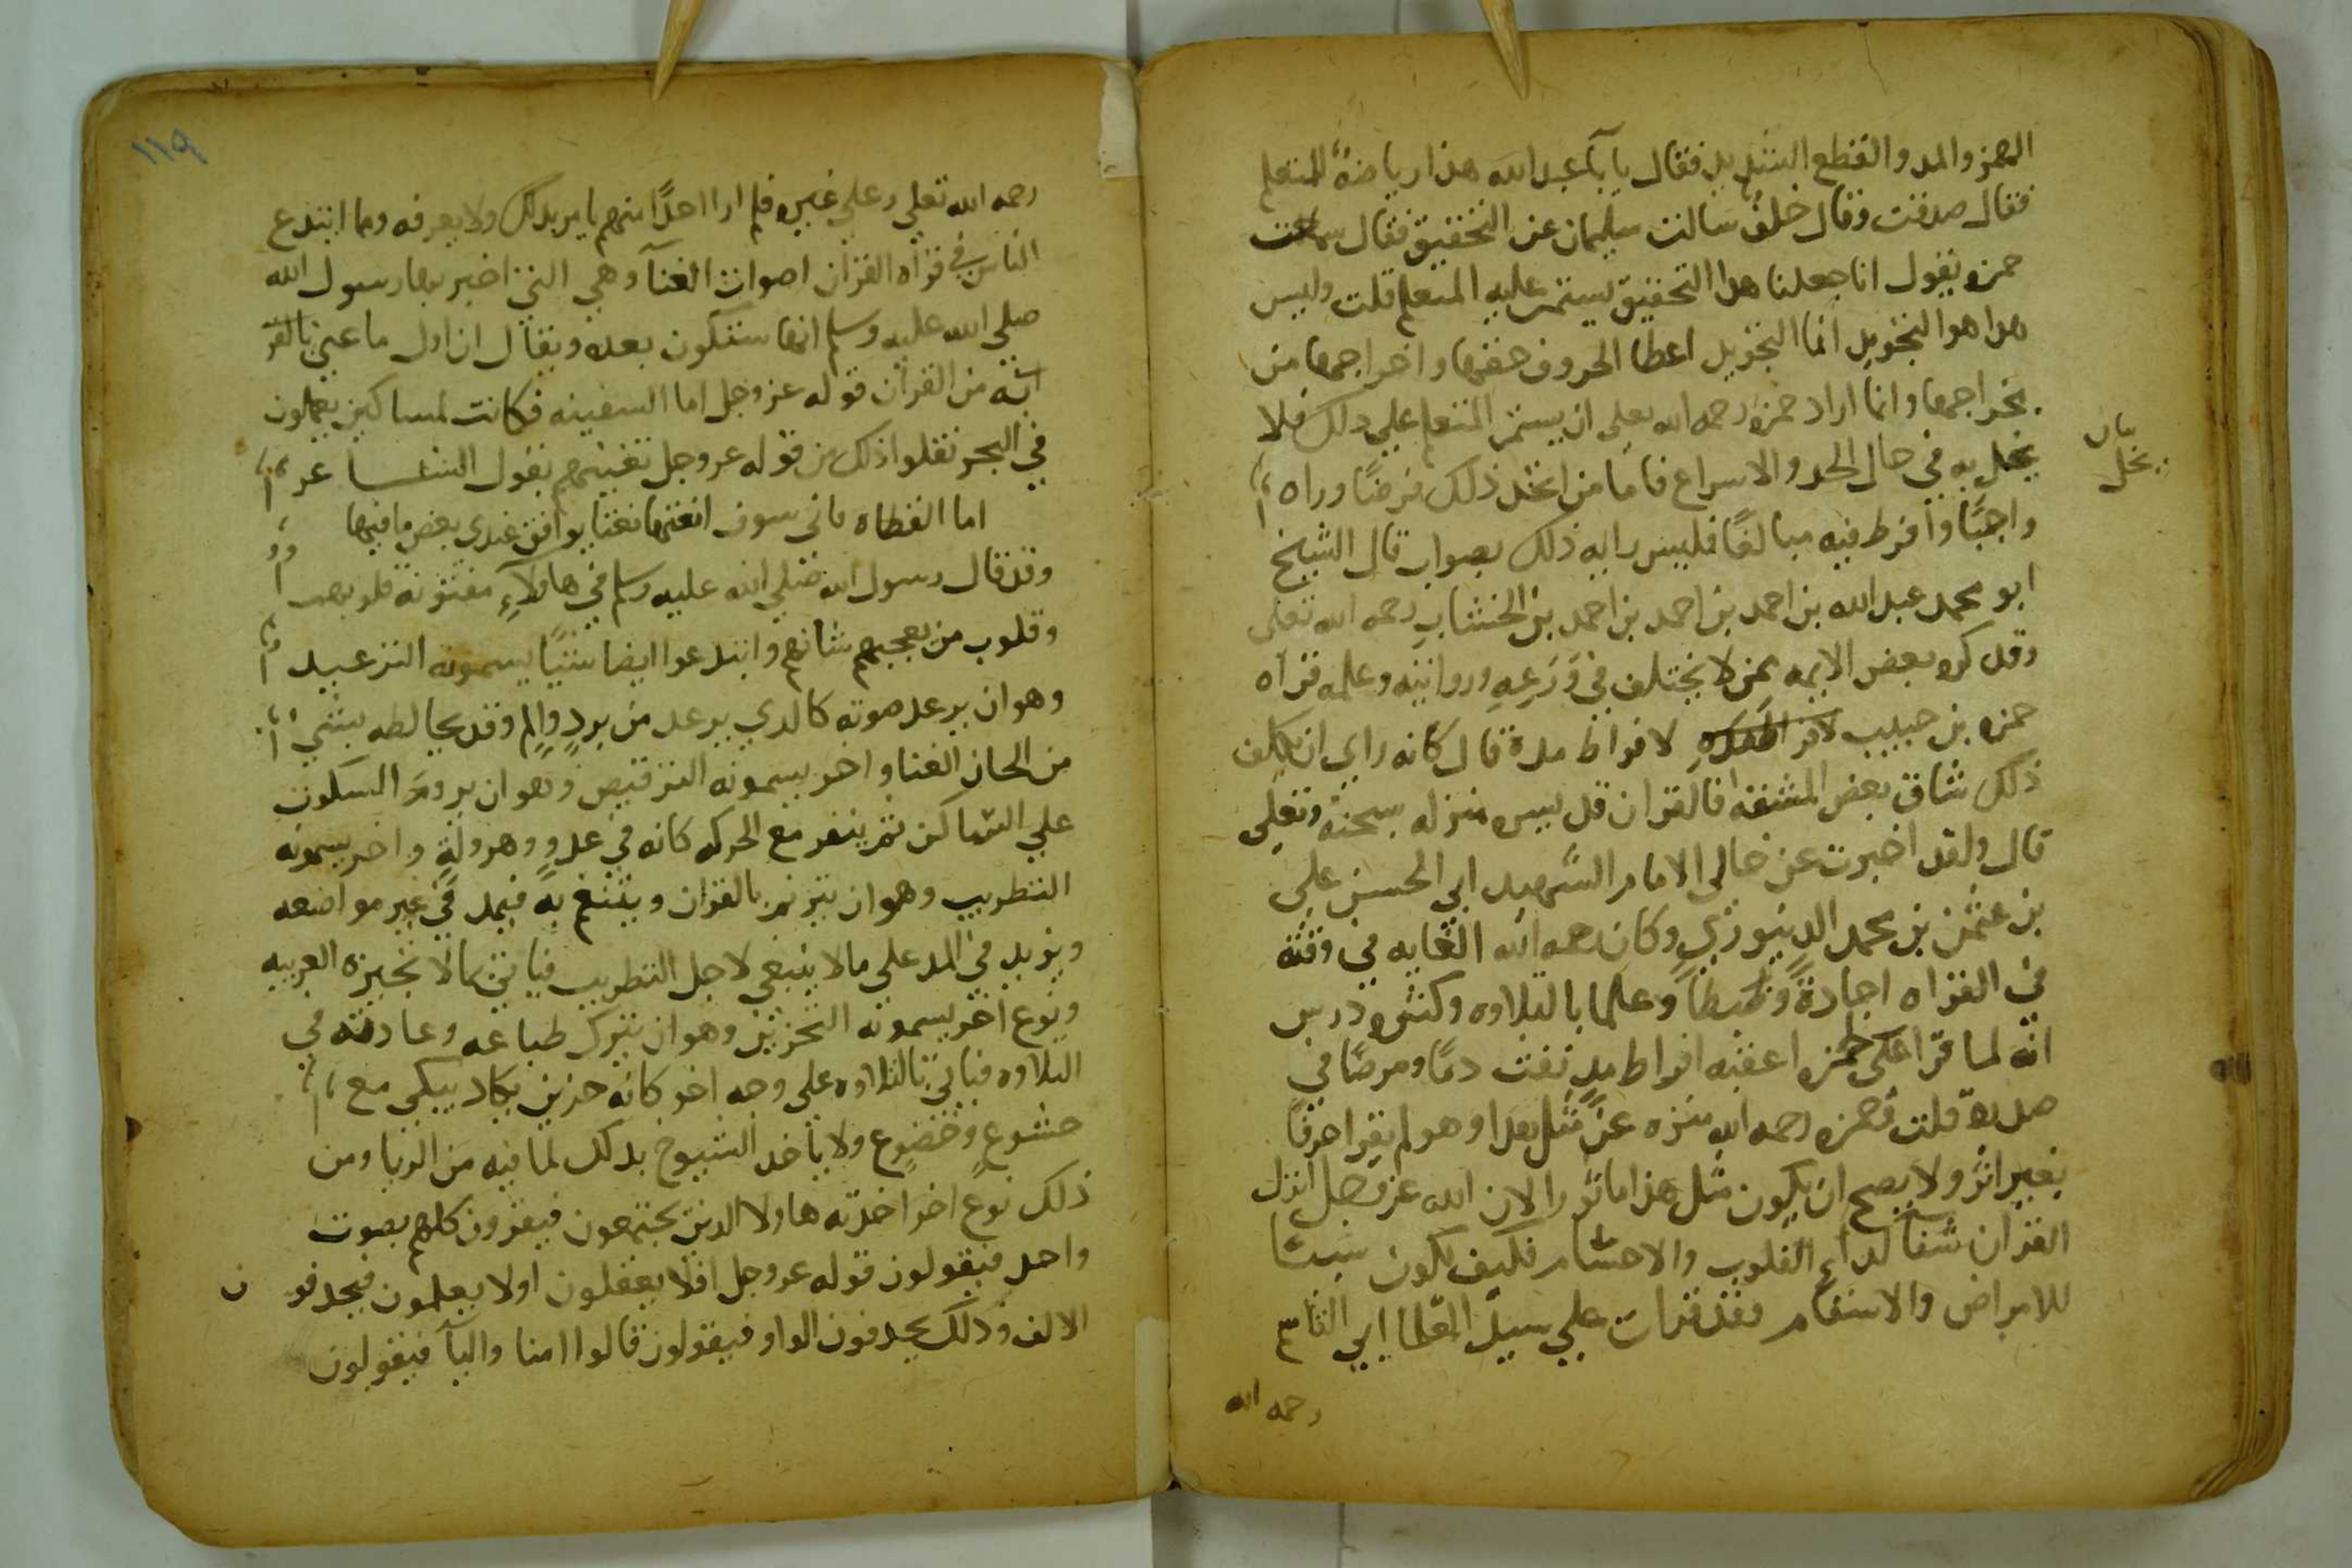 الهمز والمد والقطع الشديد فقال يا أبا عبد الله هذا رياضة للمتعلم
فقال صدقت وقال خلف سالت سليمان عن التحقيق فقال سمعت
حمزه يقول انا جعلنا هدا التحقيق ليستمر عليه المتعلم قلت وليس
هدا هو التجويد انما التجويد اعطا الحروف حقها واخراجها من
مخراجها وانما اراد حمزه رحمه الله تعلى ان يستمر المتعلم على دلك فلا
يخل به في حال الحدر والاسراع فاما من اتخد ذلك فرضًا وراه
بيان
يخل
واجبًا وافرط فيه مبالغًا فليس رايه ذلك بصواب قال الشيخ
ابو محمد عبد الله بن احمد بن احمد بن احمد بن الخشاب رحمه الله تعلى
وقد كره بعض الايمه ممن لا يختلف في وَرَعِهِ وروايته وعلمه قراه
حمزه بن حبيب لافراط مده قال كانه راي ان تكلف
ذلك شاق بعض المشقه فالقران قد يسره منزله سبحنه وتعلى
قال ولقد اخبرت عن خالى الامام الشهيد ابي الحسن على
بن عثمن بن محمد الدينوري وكان رحمه الله الغايه في وقته
في القراه اجادةً وضبطًا وعلما بالتلاوه وكثره درس
انه لما قرا على حمزه اعقبه افراط مدٍ نفث دمًا ومرضًا في
صدره قلت فحمزه رحمه الله منزه عن مثل هدا وهو لم يقرا حرفا
بغير اثر ولا يصح ان يكون مثل هذا ماثورا لان الله عز وجل انزل
القران شفآ لدآء القلوب والاجسام فكيف يكون سببًا
للامراض والاسقام فقد قرات على سيد العلما ابي القاسم
رحمه الله
١١٩
رحمه الله تعلي وعلي غيره فلم ار احدًا منهم يامر بدلك ولا يعرفه ومما ابتدع
الناس في قراه القران اصوات الغنآ وهي التي اخبر بها رسول الله
صلى الله عليه وسلم انها ستكون بعده ويقال ان اول ما غني بالقر
آنه من القران قوله عز وجل اما السفينه فكانت لمساكين يعملون
في البحر نقلوا ذلك من قوله عز وجل تغنيهم بقول الشاعر
اما القطاه فاني سوف انعتها نعتا يوافق عندي بعض ما فيها
وقد قال رسول الله صلي الله عليه وسلم في هاولآءِ مفتونة قلوبهم
وقلوب من يعجبهم شانهم وابتدعوا ايضا شيًا يسمونه الترعيد
وهو ان يرعد صوته كالدي يرعد من بردٍ والمٍ وقد يخالطه بشي
من الحان الغنا واخر يسمونه الترقيص وهو ان يروم السكون
علي الساكن ثم ينفر مع الحركه كانه في عدوٍ وهرولةٍ واخر يسمونه
التطريب وهو ان يترنم بالقران ويتنغم به فيمد في غير مواضعه
ويزيد في المد على ما لا ينبغي لاجل التطريب فياتي بما لا تجيزه العربيه
ونوع اخر يسمونه التحزين وهو ان يترك طباعه وعادته في
التلاوه فياتي بالتلاوه على وجه اخر كانه حزين يكاد يبكي مع
خشوعٍ وخضوع ولا ياخد الشيوخ بدلك لما فيه من الريا ومن
ذلك نوع اخر اخدته هاولا الدين يجتمعون فيقرون كلهم بصوت
واحد فيقولون قوله عز وجل افلا يعقلون اولا يعلمون فيحدفون
الالف وذلك يحدفون الواو فيقولون قالوا امنا واليآ فيقولون